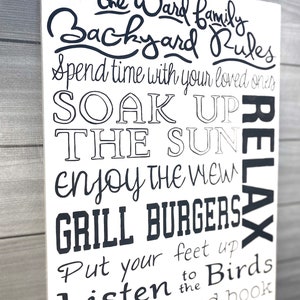 The Ward Family
Backyard Rules
Spend time with your loved ones
SOAK UP
THE SUN
RELAX
enjoy the view
GRILL BURGERS
Put your feet up
Listen to the Birds
book